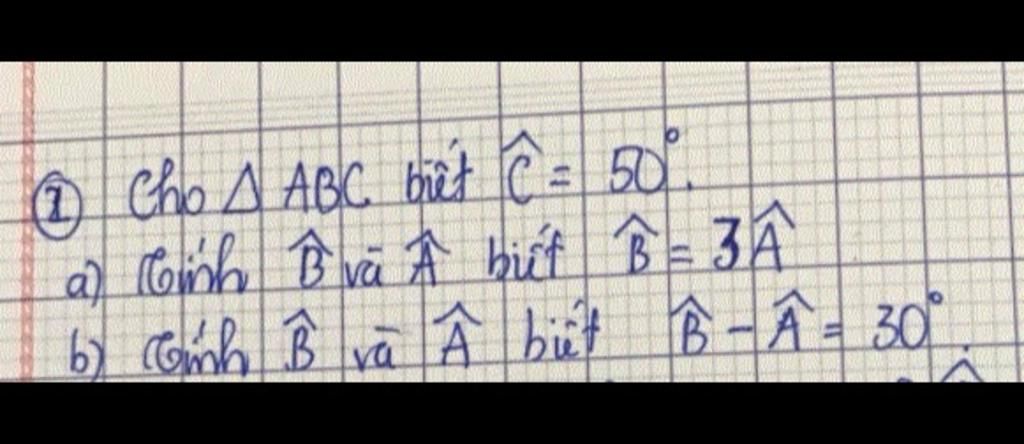 ① Cho △ ABC biết Ĉ = 50°.
a) Tính B̂ và Â biết B̂ = 3Â
b) Tính B̂ và Â biết B̂ - Â = 30°.